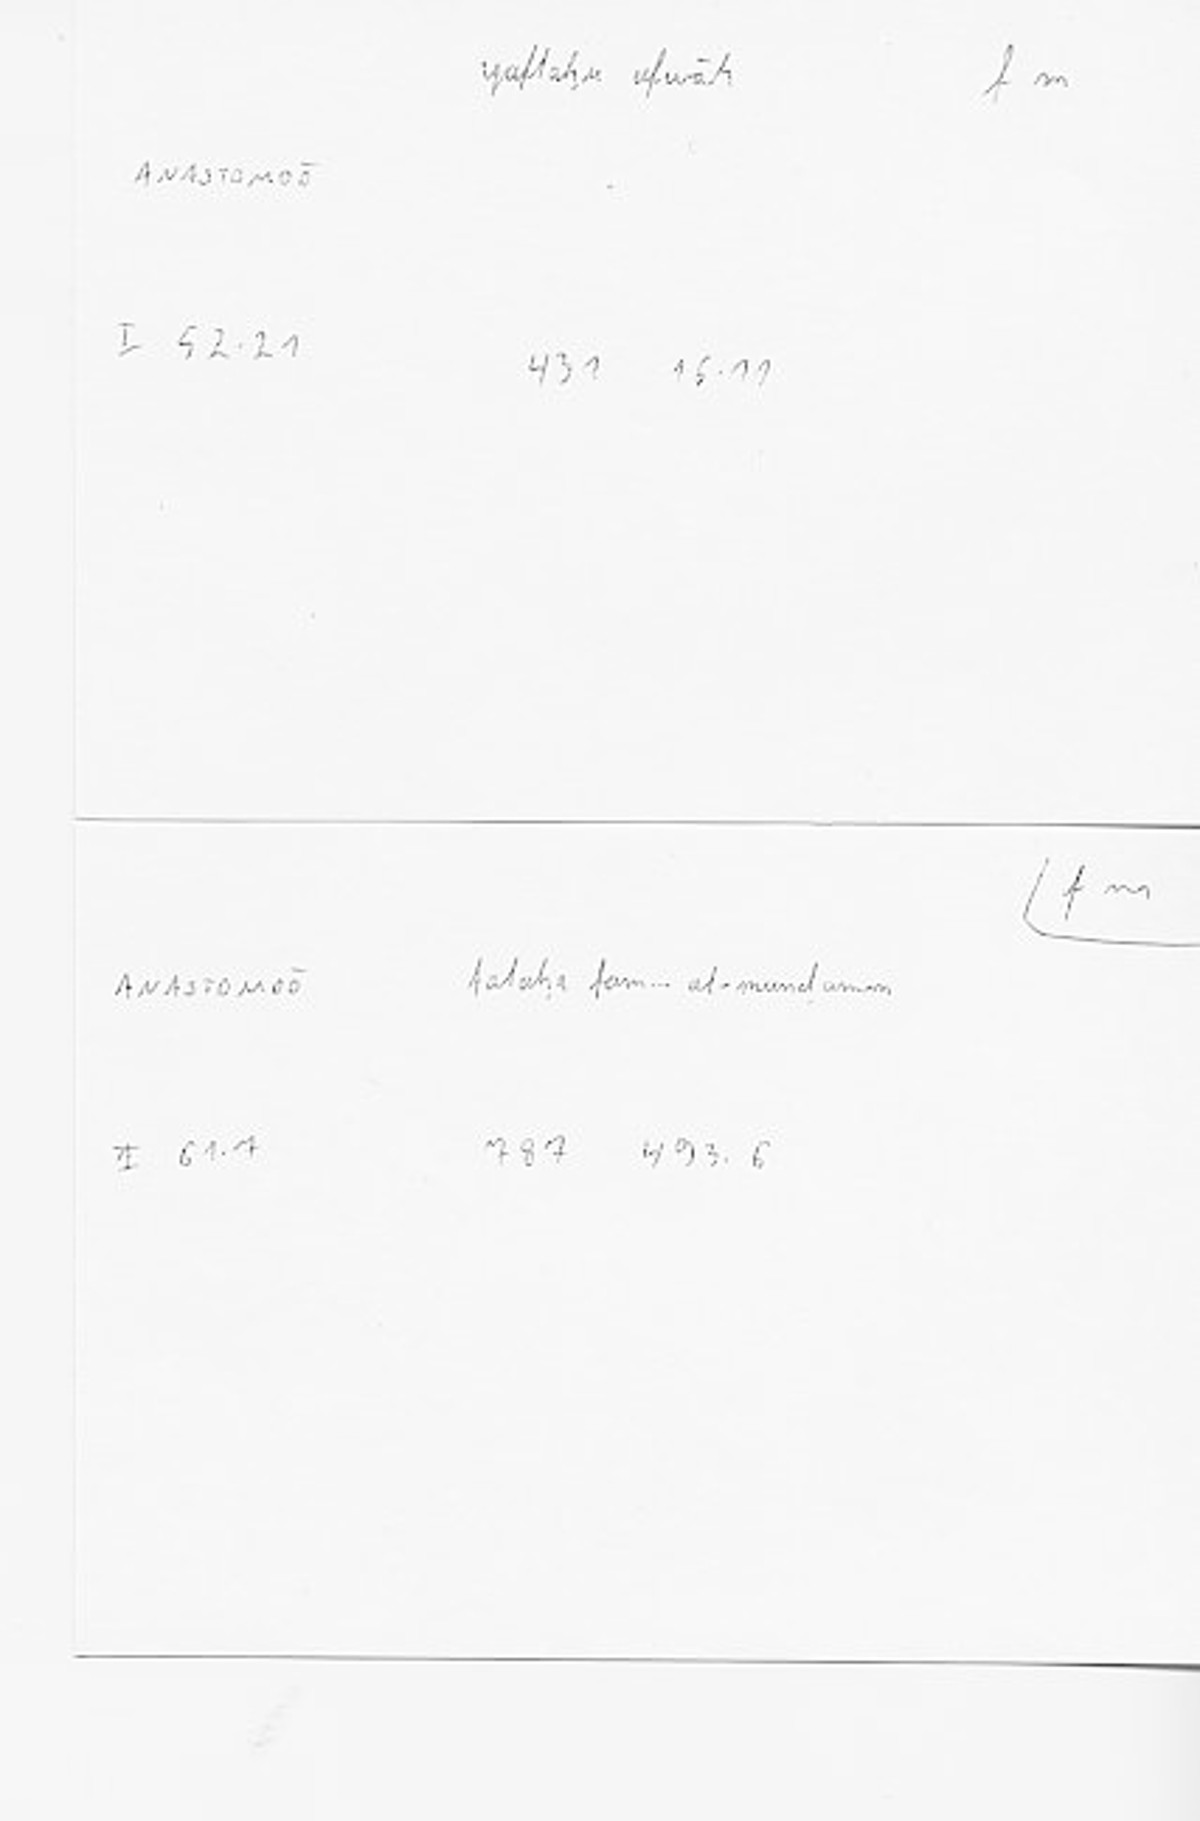 yaftaḥu afwāh f m
ANASTOMOŌ
I 52.21 431 15.11
f m
ANASTOMOŌ fataḥa fam... al-munḍamm
II 61.7 787 493.6